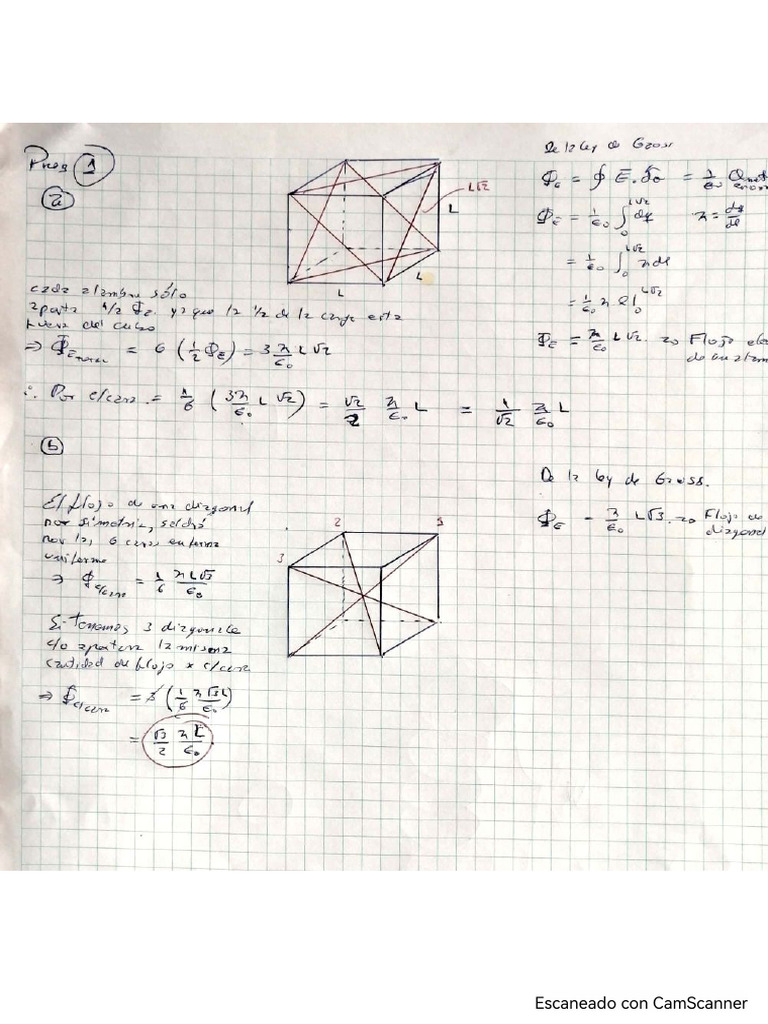 Preg 1
a
L√2
L
L
L
cada alambre sólo
aporta 1/2 Φ_E ya que la 1/2 de la carga esta
fuera del cubo
⇒ Φ_E = 6 (1/2 Φ_E) = 3 λ/ε₀ L √2
∴ Por c/cara = 1/6 (3λ/ε₀ L √2) = √2/2 λ/ε₀ L = 1/√2 λ/ε₀ L
De la ley de Gauss
Φ_E = ∮ E. = 1/ε₀ Q
Φ_E = 1/ε₀ ∫₀^{L√2} dq λ = dq/dl
= 1/ε₀ ∫₀^{L√2} λ dl
= 1/ε₀ λ l|₀^{L√2}
Φ_E = λ/ε₀ L√2. Flujo
b
El flujo de una diagonal
por simetria, saldrá
por la, 6 caras en forma
uniforme
⇒ Φ_{c/cara} = 1/6 λL√3/ε₀
Si tenemos 3 diagonale
c/o aportara la misma
cantidad de flujo x c/cara
⇒ Φ_{c/cara} = 3 (1/6 λ√3L/ε₀)
= √3/2 λL/ε₀
2
3
De la ley de Gauss.
Φ_E = λ/ε₀ L√3. Flujo de
diagonal
Escaneado con CamScanner